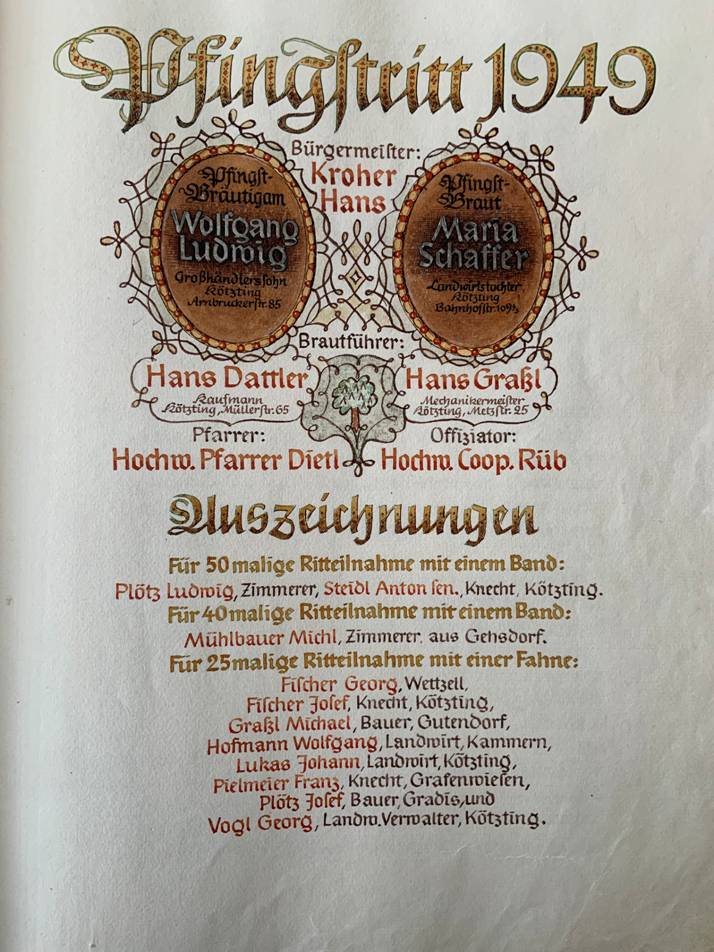 Pfingstritt 1949
Bürgermeister:
Kroher
Hans
Pfingst-
Bräutigam
Wolfgang
Ludwig
Großhändlerssohn
Kötzting
Arnbruckerstr. 85
Pfingst-
Braut
Maria
Schaffer
Landwirtstochter
Kötzting
Bahnhofstr. 109½
Brautführer:
Hans Dattler
Kaufmann
Kötzting, Müllerstr. 65
Hans Graßl
Mechanikermeister
Kötzting, Metzstr. 25
Pfarrer:
Hochw. Pfarrer Dietl
Offiziator:
Hochw. Coop. Rüb
Auszeichnungen
Für 50malige Ritteilnahme mit einem Band:
Plötz Ludwig, Zimmerer, Steidl Anton sen., Knecht, Kötzting.
Für 40malige Ritteilnahme mit einem Band:
Mühlbauer Michl, Zimmerer aus Gehsdorf.
Für 25malige Ritteilnahme mit einer Fahne:
Fischer Georg, Wettzell,
Fischer Josef, Knecht, Kötzting,
Graßl Michael, Bauer, Gutendorf,
Hofmann Wolfgang, Landwirt, Kammern,
Lukas Johann, Landwirt, Kötzting,
Pielmeier Franz, Knecht, Grafenwiesen,
Plötz Josef, Bauer, Gradis, und
Vogl Georg, Landw. Verwalter, Kötzting.